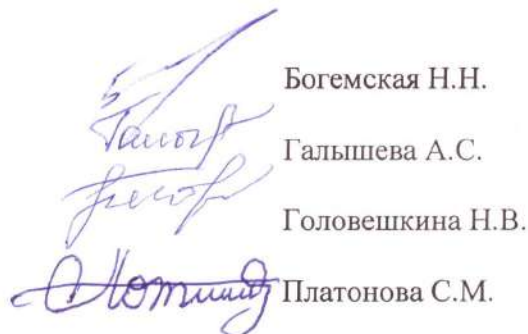 Богемская Н.Н.
Галышева А.С.
Головешкина Н.В.
Платонова С.М.